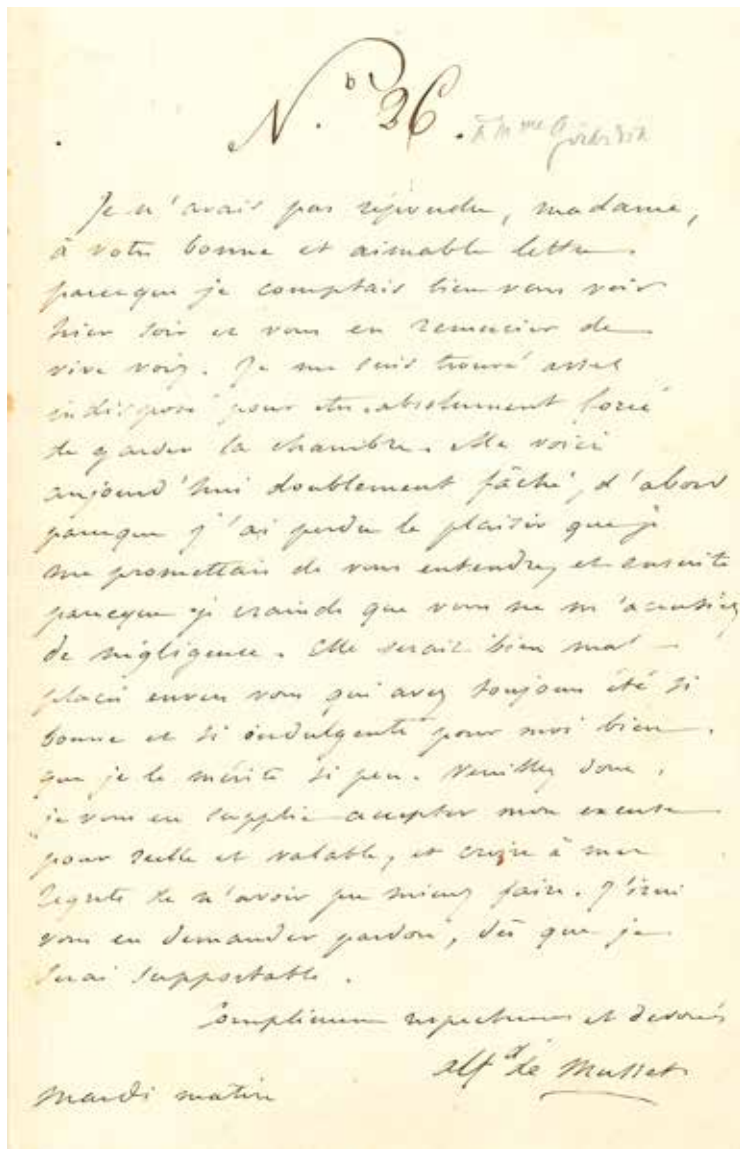 N.° 36. à Mme Girardin
Je n'avais pas répondu, madame,
à votre bonne et aimable lettre
parceque je comptais bien vous voir
hier soir et vous en remercier de
vive voix. Je me suis trouvé assez
indisposé pour être absolument forcé
de garder la chambre. Me voici
aujourd'hui doublement fâché, d'abord
parceque j'ai perdu le plaisir que je
me promettais de vous entendre, et ensuite
parceque je crains que vous ne m'accusiez
de négligence. Elle serait bien mal
placée envers vous qui avez toujours été si
bonne et si indulgente pour moi bien
que je le mérite si peu. Veuillez donc,
je vous en supplie accepter mon excuse
pour réelle et valable, et croire à mes
regrets de n'avoir pu mieux faire. J'irai
vous en demander pardon, dès que je
serai supportable.
Compliments respectueux et dévoués
Alf d de Musset
mardi matin